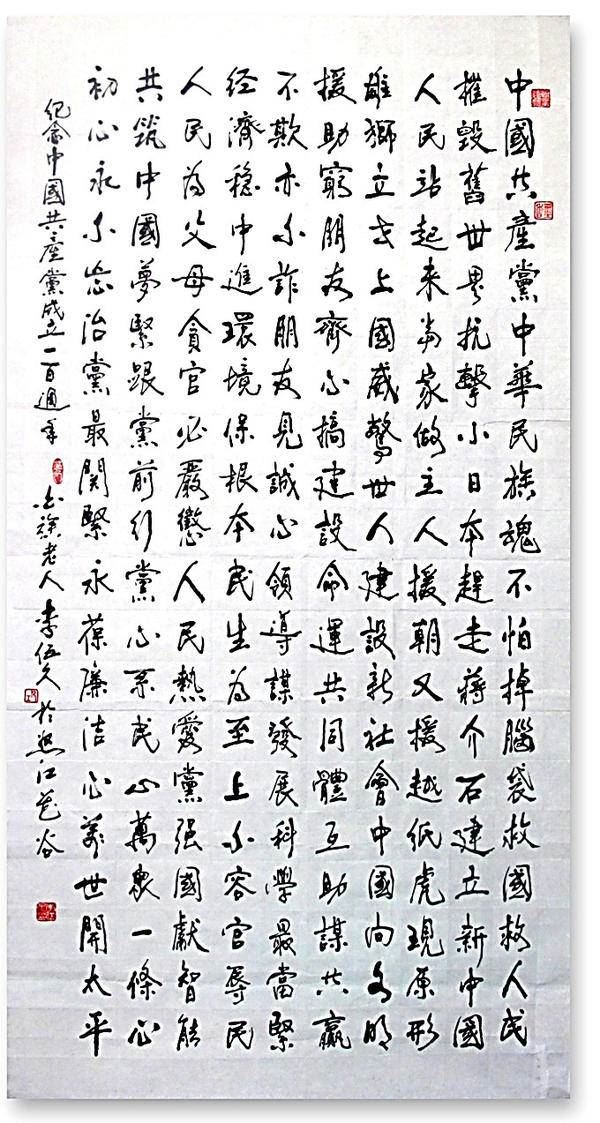 中國共產黨中華民族魂不怕掉腦袋救國救人民
摧毀舊世界抗擊小日本趕走蔣介石建立新中國
人民站起來當家做主人援朝又援越紙虎現原形
雄獅立世上國威驚世人建設新社會中國向文明
援助窮朋友齊心搞建設命運共同體互助謀共贏
不欺亦不詐朋友見誠心領導謀發展科學最當緊
经濟穩中進環境保根本民生為至上不容官辱民
人民為父母貪官必嚴懲人民熱愛黨强國獻智能
共筑中國夢緊跟黨前行黨心系民心萬衆一條心
初心永不忘治黨最関緊永葆廉洁心萬世開太平
纪念中國共產黨成立一百週年 老人李伍久於江谷